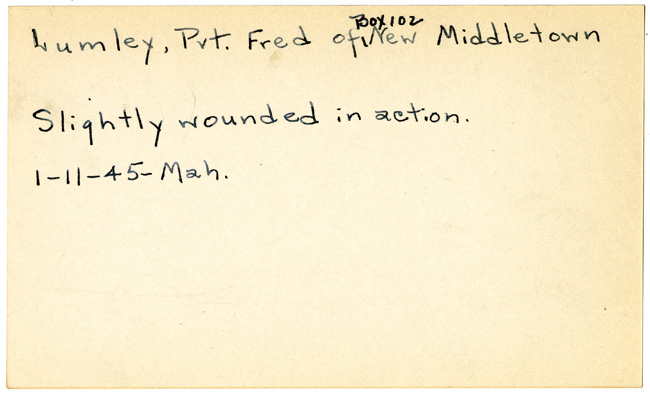 Box 102
Lumley, Pvt. Fred of New Middletown
Slightly wounded in action.
1-11-45- Mah.